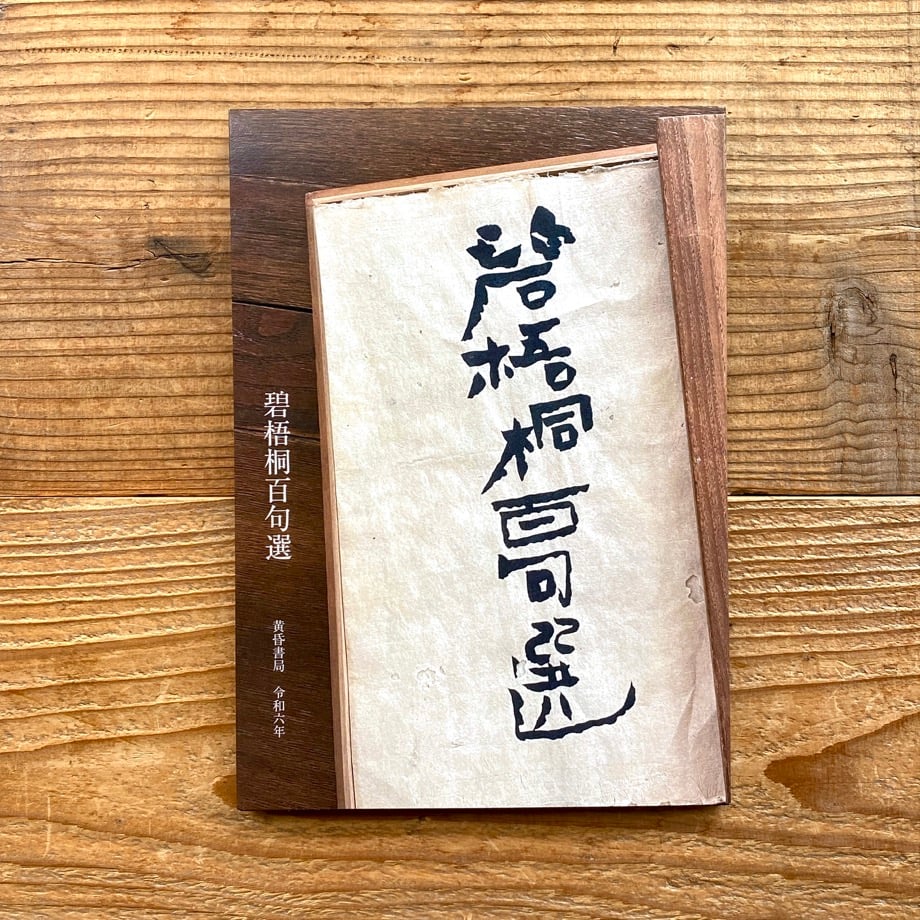 碧梧桐百句選
碧梧桐百句選
黄昏書局　令和六年